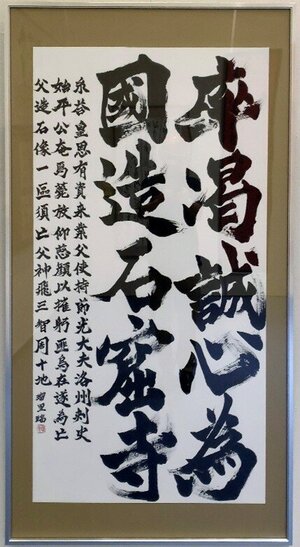 率渴誠心為
國造石窟寺
糸荅皇恩有資来業父使持節光大夫洛州刺史
始平公奄焉薨放仰慈顔以摧躬匪烏在遂為亡
父造石像一區須亡父神飛三智周十地